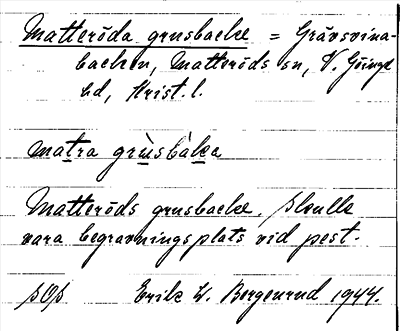 Matteröda grusbacke = Grävsvina-
backen, Matteröds sn, V. Göinge
hd, Krist. l.
matra grùsbàka
Matteröds grusbacke. Skulle
vara begravningsplats vid pest.
Erik W. Bergenrud 1944.